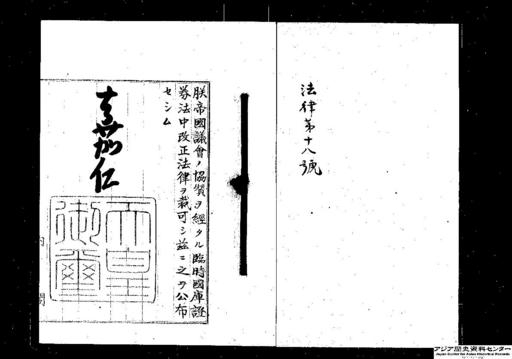 法律第十八號
朕帝國議會ノ協贊ヲ經タル臨時國庫證
券法中改正法律ヲ裁可シ茲ニ之ヲ公布
セシム
嘉仁
天皇
御璽
内閣
アジア歴史資料センター
Japan Center for Asian Historical Records